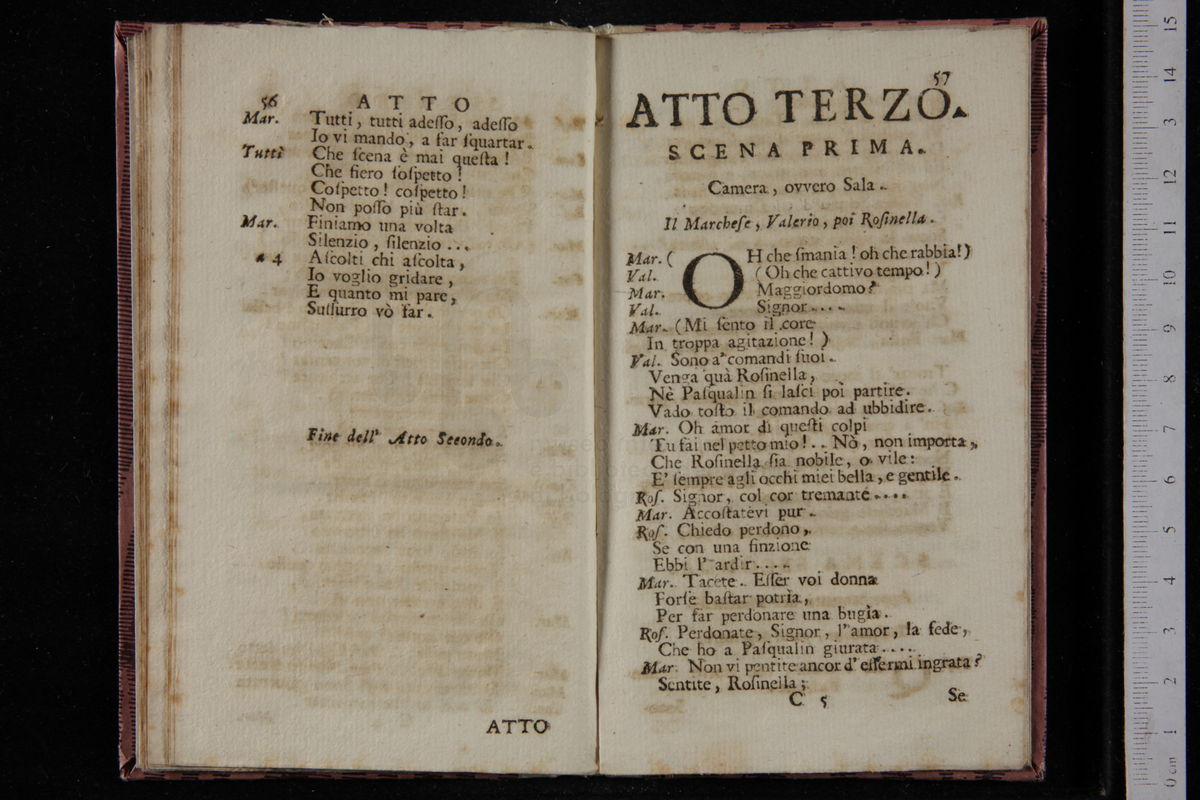 56 ATTO
Mar. Tutti, tutti adeſſo, adeſſo
Io vi mando, a far ſquartar.
Tutti Che ſcena è mai queſta!
Che fiero ſoſpetto!
Coſpetto! coſpetto!
Non poſſo più ſtar.
Mar. Finiamo una volta
Silenzio, ſilenzio...
a 4 Aſcolti chi aſcolta,
Io voglio gridare,
E quanto mi pare,
Suſſurro vò far.
Fine dell' Atto Secondo.
ATTO
57
ATTO TERZO.
SCENA PRIMA.
Camera, ovvero Sala.
Il Marcheſe, Valerio, poi Roſinella.
Mar. (OH che ſmania! oh che rabbia!)
Val. (Oh che cattivo tempo!)
Mar. Maggiordomo?
Val. Signor....
Mar. (Mi ſento il core
In troppa agitazione!)
Val. Sono a' comandi ſuoi.
Venga quà Roſinella,
Nè Paſqualin ſi laſci poi partire.
Vado toſto il comando ad ubbidire.
Mar. Oh amor di queſti colpi
Tu fai nel petto mio!.. Nò, non importa,
Che Roſinella ſia nobile, o vile:
E' ſempre agli occhi miei bella, e gentile.
Roſ. Signor, col cor tremante....
Mar. Accoſtatevi pur.
Roſ. Chiedo perdono,
Se con una finzione
Ebbi l' ardir....
Mar. Tacete. Eſſer voi donna
Forſe baſtar potrìa,
Per far perdonare una bugìa.
Roſ. Perdonate, Signor, l'amor, la fede,
Che ho a Paſqualin giurata....
Mar. Non vi pentite ancor d' eſſermi ingrata?
Sentite, Roſinella;
C 5 Se
0 cm 1 2 3 4 5 6 7 8 9 10 11 12 3 14 15